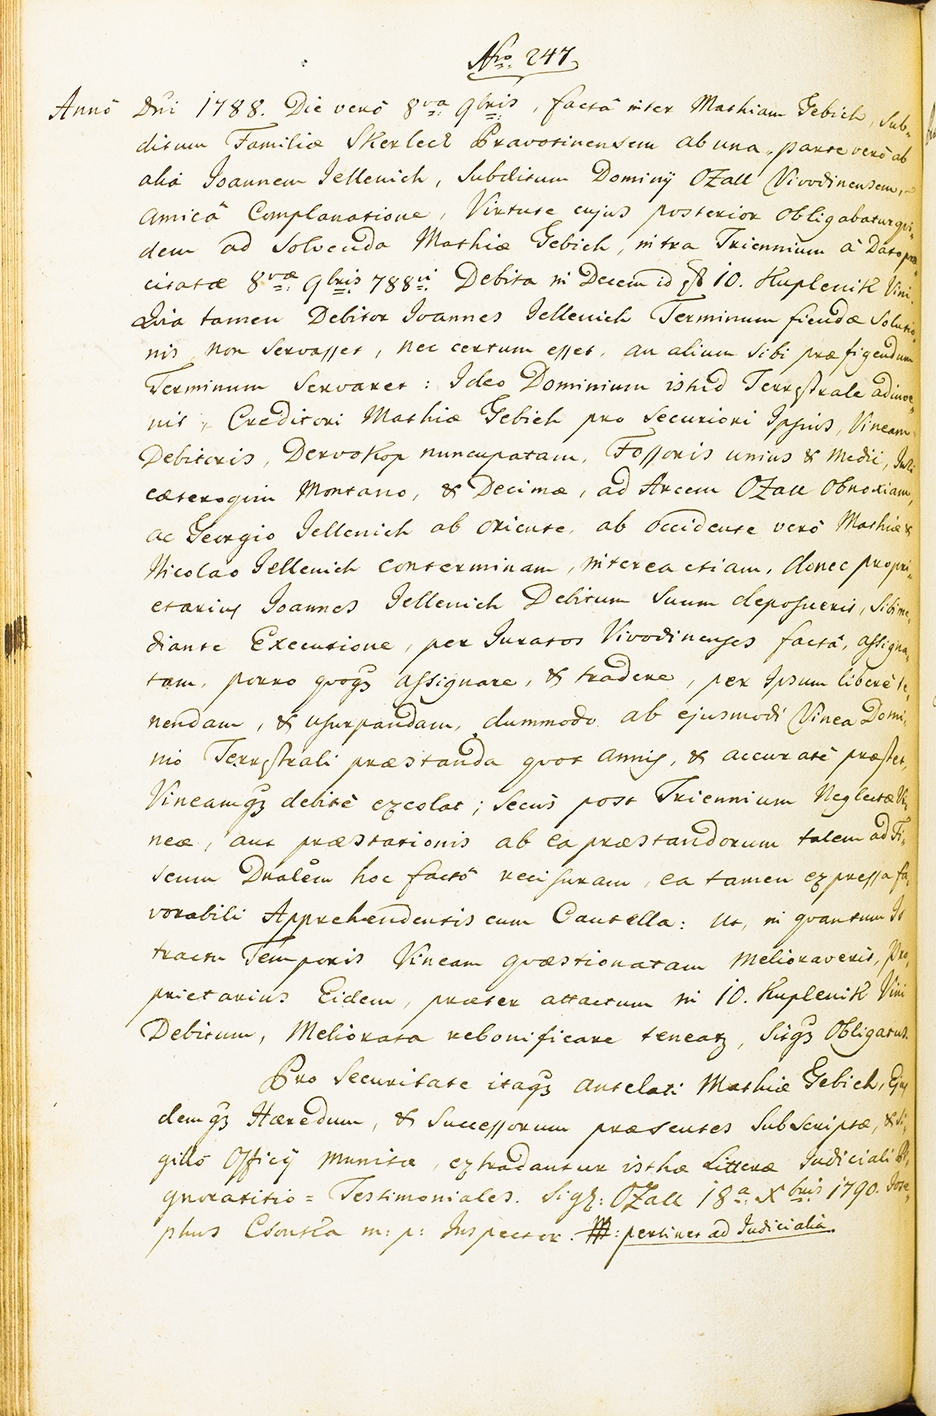 Nro. 247
Anno Dni 1788. Die vero 8va 9bris, facta inter Mathiam Gebich, Sub-
ditum Familiæ Skerlecz Pravotinensem ab una, parte vero ab
alia Joannem Jellenich, Subditum Dominij Ozall Vivodinensem,
Amica Complanatione, Virtute cujus posterior obligabatur qui-
dem ad Solvenda Mathiæ Gebich, intra Triennium a Dato præ
citatæ 8væ 9bris 788vi Debita in Decem id est 10. Kuplenik Vini.
Quia tamen Debitor Joannes Jellenich Terminum fiendæ Solutio-
nis non Servasset, nec certum esset, an alium Sibi præfigendum
Terminum Servaret: Ideo Dominium isthid Terrestrale adinve-
nit, Creditori Mathiæ Gebich pro Securiori Ipsius, Vineam
Debitoris, Dervoskop nuncupatam, Fossoris unius & Medii,
cæteroquin Montano, & Decimæ, ad Arcem Ozall Obnoxiam,
ac Georgio Jellenich ab oriente, ab occidente vero Mathiæ &
Nicolao Jellenich conterminam, interea etiam, donec propri-
etarius Joannes Jellenich Debitum Suum deposuerit, Sibi me-
diante Executione, per Juratos Vivodinenses facta, assigna-
tam, porro quoq3 assignare, & tradere, per Ipsum libere te-
nendam, & usurpandam, dummodo ab ejusmodi Vinea Domi-
nio Terrestrali præstanda quot annis, & accurate præstet,
Vineamq3 debite excolat; Secus post Triennium Neglectæ Vi-
neæ, aut præstationis ab Ea præstandorum talem ad Fi-
scum Dnalem hoc facto recisuram, ea tamen expressa fa-
vorabili Apprehendentis cum Cautella: Ut, in quantum It
tractu Temporis Vineam quæstionatam Melioraverit, Pro-
prietarius Eidem, præter attactum in 10. Kuplenik Vini
Debitum, Meliorata rebonificare teneat3, Sitq3 Obligatus.
Pro Securitate itaq3 antelati Mathiæ Gebich, Ejus
demq3 Hæredum, & Successorum præsentes Subscriptæ, & Si-
gillo Officij Munitæ, extradantur isthæ Litteræ Judiciali
gnoratitio = Testimoniales. Sig: Ozall 18a Xbris 1790. Jose-
phus Csonka m: p: Inspector. : pertinet ad Judicialia.